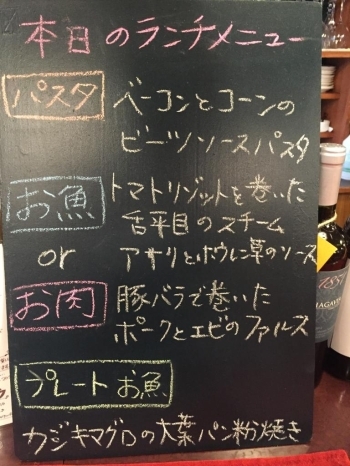 本日のランチメニュー
パスタ ベーコンとコーンの
ビーツソースパスタ
お魚 トマトリゾットを巻いた
舌平目のスチーム
or アサリとホウレン草のソース
お肉 豚バラで巻いた
ポークとエビのファルス
プレートお魚
カジキマグロの大葉パン粉焼き